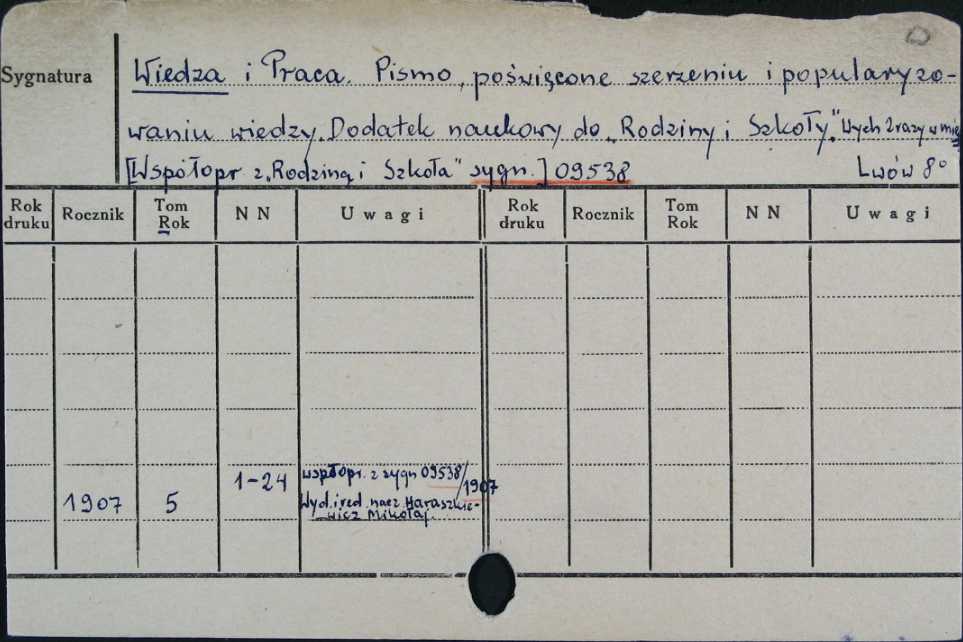 Sygnatura
Wiedza i Praca. Pismo, poświęcone szerzeniu i popularyzo-
waniu wiedzy. Dodatek naukowy do „Rodziny i Szkoły." Wych 2 razy w mies
[Współopr z „Rodziną i Szkoła" sygn.] 09538 Lwów 8°
Rok druku Rocznik Tom Rok NN Uwagi Rok druku Rocznik Tom Rok NN Uwagi
1907 5 1-24 współopr. z sygn 09538/1907
Wyd. i red. nacz. Haraszkie-
wicz Mikołaj.